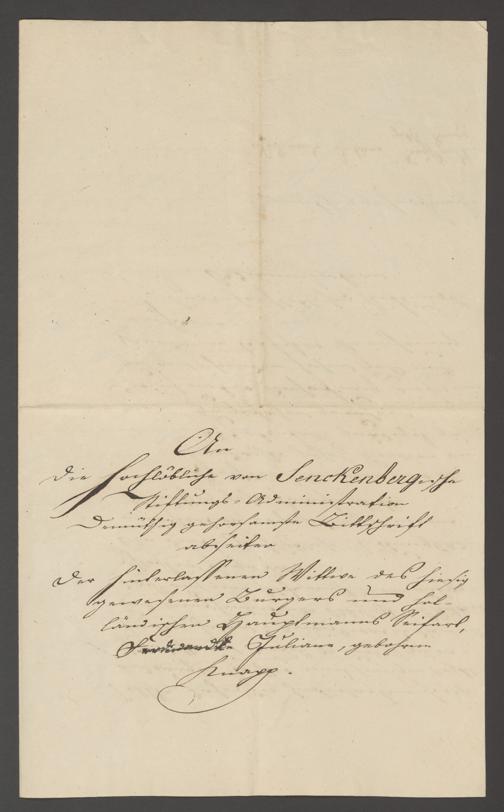 An
die hochlöbliche von Senckenbergische
Stiftungs-Administration
Demüthig gehorsamste Bittschrift
abseiten
der hinterlassenen Wittwe des hiesig
gewesenen Burgers und hol-
ländischen Hauptmanns Seifart,
Juliane, geborene
Knapp.